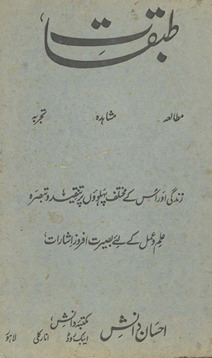 طبقات
مطالعہ مشاہدہ تجربہ
زندگی اور اس کے مختلف پہلوؤں پر تنقید و تبصرہ
علم و عمل کے لئے بصیرت افروز اشارات
احسان دانش
مکتبۂ دانش
انارکلی لاہور